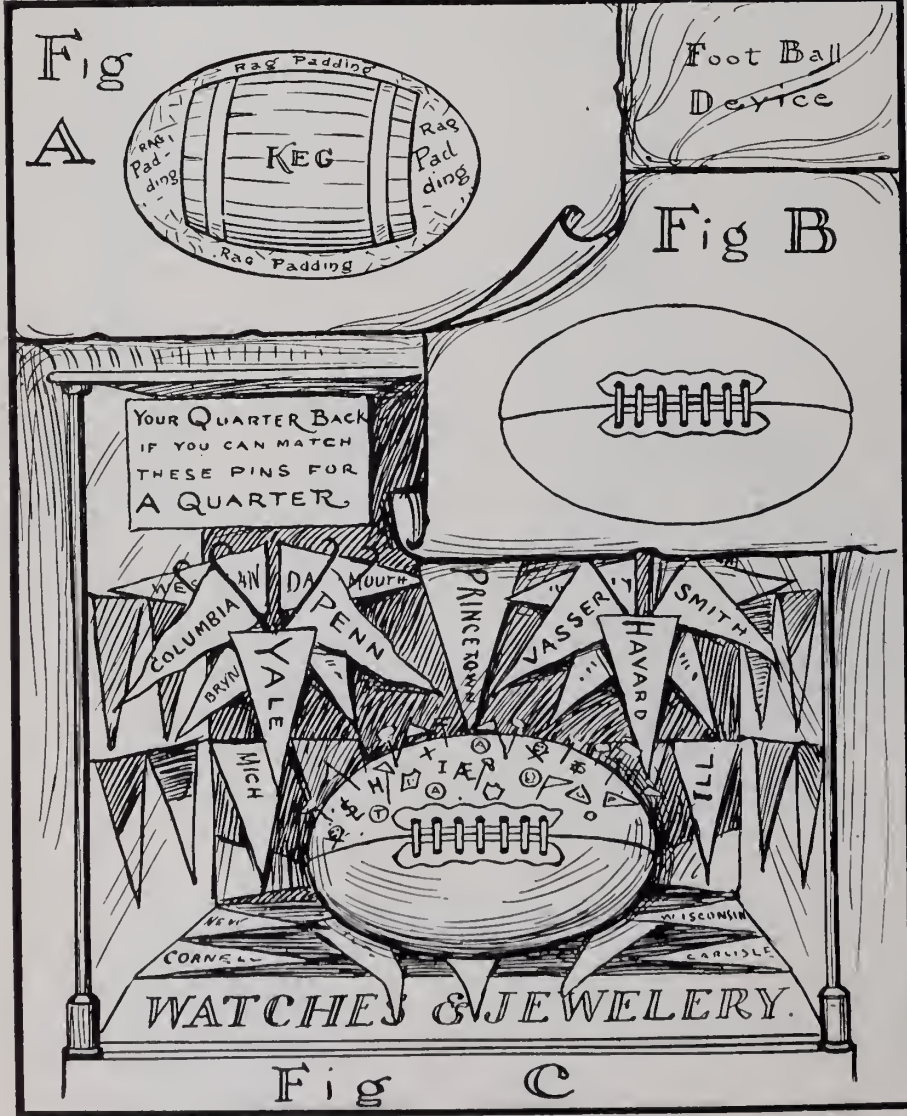 Fig
A
Rag Padding
RAG
Pad-
ding
KEG
Rag
Pad
ding
Rag Padding
Foot Ball
Device
Fig B
YOUR QUARTER BACK
IF YOU CAN MATCH
THESE PINS FOR
A QUARTER
DA MOUTH
COLUMBIA
PENN
PRINCETOWN
VASSER
SMITH
BRYN
YALE
HAVARD
MICH
ILL
NEW
WISCONSIN
CORNELL
CARLISLE
WATCHES & JEWELERY.
Fig C